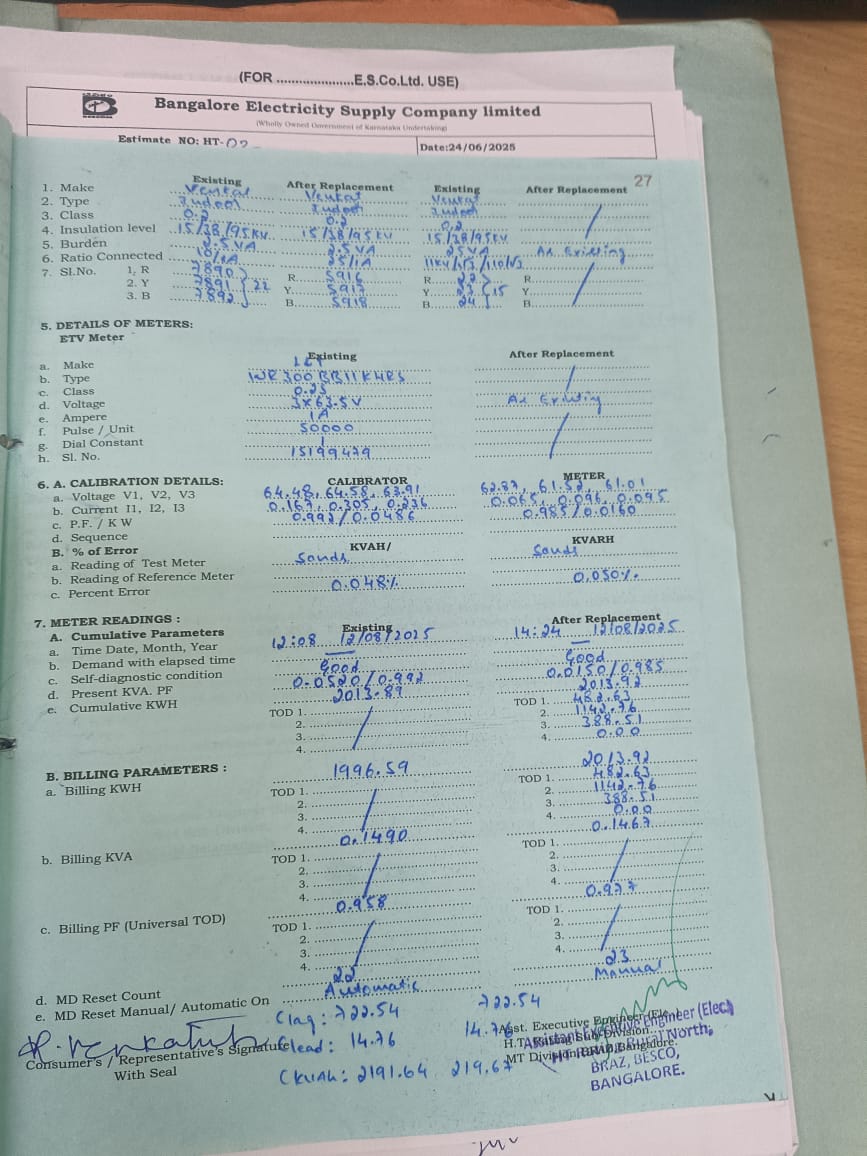 (FOR .....................E.S.Co.Ltd. USE)
Bangalore Electricity Supply Company limited
(Wholly Owned Government of Karnataka Undertaking)
Estimate NO: HT-02 Date:24/06/2025
27
Existing After Replacement Existing After Replacement
1. Make Venkat Venkat Venkat
2. Type Indoor Indoor Indoor
3. Class 0.2 0.2 0.2
4. Insulation level 15/38/95KV 15/38/95KV 15/38/95KV
5. Burden 2.5VA 2.5VA 25VA As Existing
6. Ratio Connected 10/1A 25/1A 11KV/√3/110/√3
7. Sl.No. 1. R 7890 R 5916 R 22 R
2. Y 7891 22 Y 5917 Y 23 15 Y
3. B 7892 B 5918 B 24 B
5. DETAILS OF METERS:
ETV Meter
Existing After Replacement
a. Make L&T
b. Type
c. Class
d. Voltage 3X63.5V As Existing
e. Ampere 1A
f. Pulse / Unit 50000
g. Dial Constant 1
h. Sl. No. 15199479
6. A. CALIBRATION DETAILS: CALIBRATOR METER
a. Voltage V1, V2, V3 64.48, 64.58, 63.91 62.87, 61.52, 61.01
b. Current I1, I2, I3 0.167, 0.305, 0.236 0.065, 0.096, 0.095
c. P.F. / K W 0.992/0.0486 0.985/0.0160
d. Sequence
B. % of Error KVAH/ KVARH
a. Reading of Test Meter Sands Sands
b. Reading of Reference Meter
c. Percent Error 0.048% 0.050%
7. METER READINGS :
A. Cumulative Parameters Existing After Replacement
a. Time Date, Month, Year 12:08 12/08/2025 14:24 12/08/2025
b. Demand with elapsed time — —
c. Self-diagnostic condition Good Good
d. Present KVA. PF 0.0520/0.992 0.0150/0.985
e. Cumulative KWH 2013.89 2013.92
TOD 1. TOD 1. 482.63
2. 2. 1142.76
3. 3. 388.51
4. 4. 0.00
B. BILLING PARAMETERS :
a. Billing KWH 1996.59 2013.92
TOD 1. TOD 1. 482.63
2. 2. 1142.76
3. 3. 388.51
4. 4. 0.00
b. Billing KVA 0.1490 0.1467
TOD 1. TOD 1.
2. 2.
3. 3.
4. 4.
c. Billing PF (Universal TOD) 0.958 0.977
TOD 1. TOD 1.
2. 2.
3. 3.
4. 4.
d. MD Reset Count 22 23
e. MD Reset Manual/ Automatic On Automatic Manual
Clag: 722.54 722.54
Clead: 14.76 14.76
CKVAh: 2191.64 219.67
Consumer's / Representative's Signature
With Seal
Asst. Executive Engineer (Ele.)
H.T. Rating Sub Division
MT Division BRAZ, Bangalore.
Assistant Executive Engineer (Elec.)
HT Rural North,
BRAZ, BESCO,
BANGALORE.